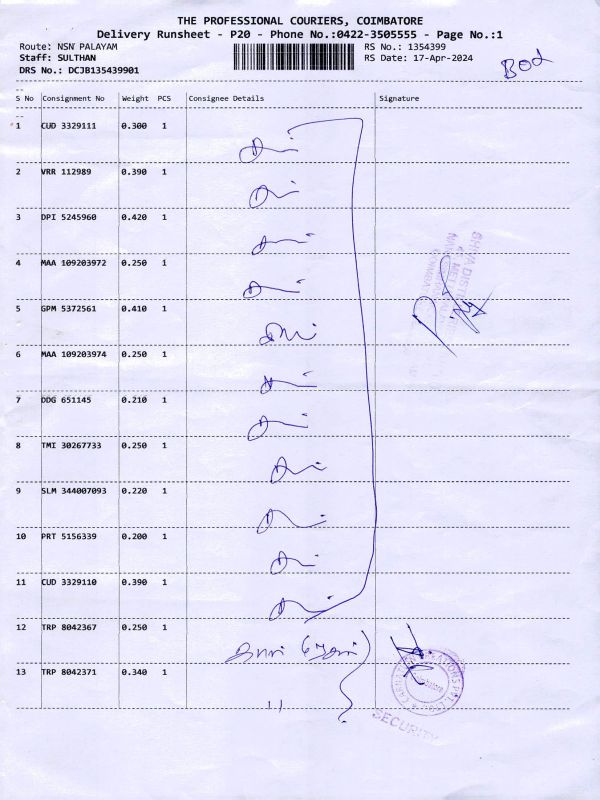 THE PROFESSIONAL COURIERS, COIMBATORE
Delivery Runsheet - P20 - Phone No.:0422-3505555 - Page No.:1
Route: NSN PALAYAM RS No.: 1354399
Staff: SULTHAN RS Date: 17-Apr-2024
DRS No.: DCJB135439901
S No Consignment No Weight PCS Consignee Details Signature
1 CUD 3329111 0.300 1
2 VRR 112989 0.390 1
3 DPI 5245960 0.420 1
4 MAA 109203972 0.250 1
5 GPM 5372561 0.410 1
6 MAA 109203974 0.250 1
7 DDG 651145 0.210 1
8 TMI 30267733 0.250 1
9 SLM 344007093 0.220 1
10 PRT 5156339 0.200 1
11 CUD 3329110 0.390 1
12 TRP 8042367 0.250 1
13 TRP 8042371 0.340 1
Coimbatore
SECURITY